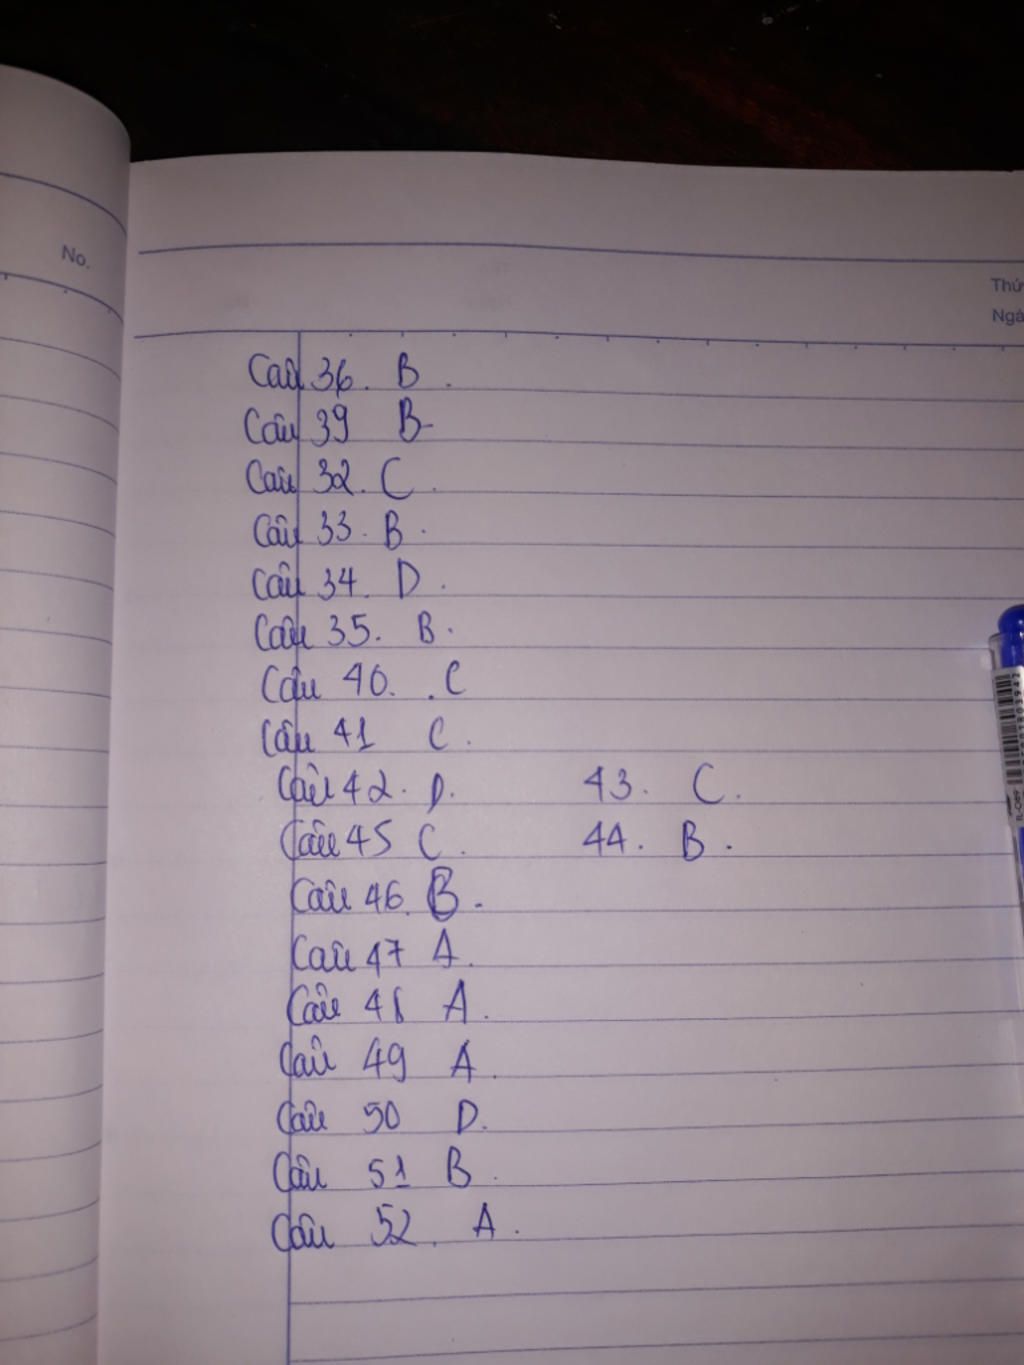 No.
Thứ
Ngà
Câu 36. B.
Câu 39 B
Câu 32. C.
Câu 33. B.
Câu 34. D.
Câu 35. B.
Câu 40. .C
Câu 41 C.
Câu 42. D. 43. C.
Câu 45 C. 44. B.
Câu 46. B.
Câu 47 A.
Câu 48 A.
Câu 49 A.
Câu 50 D.
Câu 51 B.
Câu 52. A.